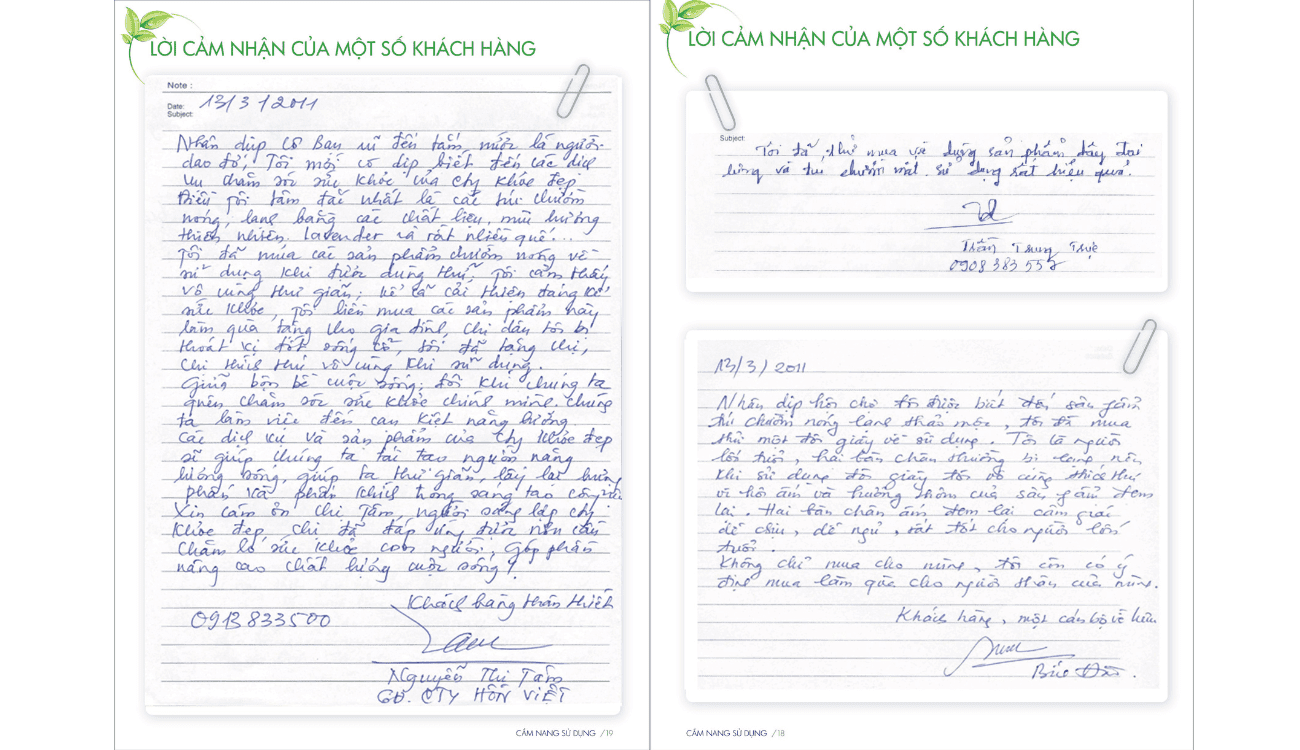 LỜI CẢM NHẬN CỦA MỘT SỐ KHÁCH HÀNG
Note :
Date: 13/3/2011
Subject:
Nhân dịp cô bạn rủ đến tắm nước lá người
dao đỏ, Tôi mới có dịp biết đến các dịch
vụ chăm sóc sức khỏe của Cty Khỏe đẹp
Điều tôi tâm đắc nhất là các túi chườm
nóng, lạnh bằng các chất liệu, mùi hương
thiên nhiên. lavender và rất nhiều quế...
Tôi đã mua các sản phẩm chườm nóng về
sử dụng khi được dùng thử, tôi cảm thấy
vô cùng thư giãn, kể cả cải thiện đáng kể
sức khỏe, tôi liền mua các sản phẩm này
làm quà tặng cho gia đình, chị dâu tôi bị
thoát vị đốt sống cổ, tôi đã tặng chị,
chị thích thú vô cùng khi sử dụng.
Giữa bộn bề cuộc sống, đôi khi chúng ta
quên chăm sóc sức khỏe chính mình. chúng
ta làm việc đến cạn kiệt năng lượng.
Các dịch vụ và sản phẩm của Cty Khỏe đẹp
sẽ giúp chúng ta tái tạo nguồn năng
lượng sống, giúp ta thư giãn, lấy lại hưng
phấn và phấn khích trong sáng tạo công việc
Xin cảm ơn chị Tâm, người sáng lập cty
Khỏe đẹp, chị đã đáp ứng được nhu cầu
chăm lo sức khỏe con người, góp phần
nâng cao chất lượng cuộc sống!
Khách hàng thân thiết
0913 833500
Nguyễn Thị Tâm
GĐ. CTY HỒN VIỆT
CẨM NANG SỬ DỤNG /19
LỜI CẢM NHẬN CỦA MỘT SỐ KHÁCH HÀNG
Subject:
Tôi đã thử mua về dụng sản phẩm dây đai
lưng và túi chườm mắt. Sử dụng rất hiệu quả.
Trần Trung Trực
0908 383 557
13/3/2011
Nhân dịp hội chợ tôi được biết đến sản phẩm
túi chườm nóng lạnh thảo mộc, tôi đã mua
thử một đôi giầy về sử dụng. Tôi là người
lớn tuổi, hai bàn chân thường bị lạnh nên
khi sử dụng đôi giầy tôi vô cùng thích thú
vì hơi ấm và hương thơm của sản phẩm đem
lại. Hai bàn chân ấm đem lại cảm giác
dễ chịu, dễ ngủ, rất tốt cho người lớn
tuổi.
Không chỉ mua cho mình, tôi còn có ý
định mua làm quà cho người thân của mình.
Khách hàng, một cán bộ về hưu
CẨM NANG SỬ DỤNG /18